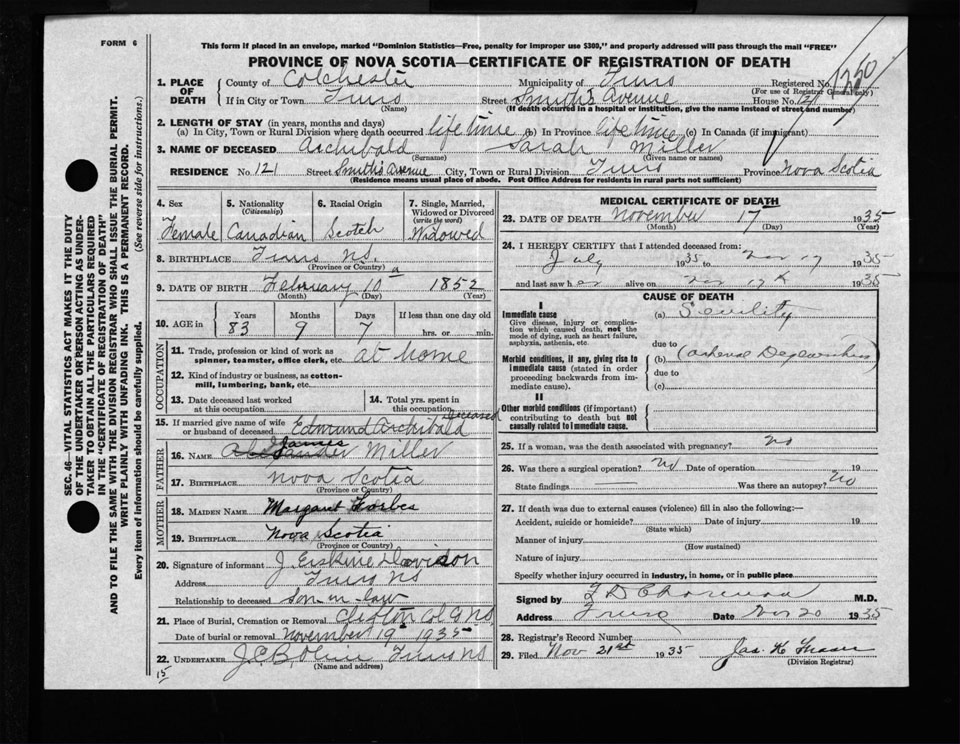 FORM 6
This form if placed in an envelope, marked "Dominion Statistics—Free, penalty for improper use $300," and properly addressed will pass through the mail "FREE"
PROVINCE OF NOVA SCOTIA—CERTIFICATE OF REGISTRATION OF DEATH
1. PLACE OF DEATH
County of Colchester Municipality of Truro Registered No. 1250
(For use of Registrar General only)
If in City or Town Truro Street Smith's Avenue House No. 121
(Name) (If death occurred in a hospital or institution, give the name instead of street and number)
2. LENGTH OF STAY (in years, months and days)
(a) In City, Town or Rural Division where death occurred lifetime (b) In Province lifetime (c) In Canada (if immigrant)
3. NAME OF DECEASED Archibald Sarah Miller
(Surname) (Given name or names)
RESIDENCE No. 121 Street Smith's Avenue City, Town or Rural Division Truro Province Nova Scotia
(Residence means usual place of abode. Post Office Address for residents in rural parts not sufficient)
4. Sex
Female
5. Nationality (Citizenship)
Canadian
6. Racial Origin
Scotch
7. Single, Married, Widowed or Divorced (write the word)
Widowed
8. BIRTHPLACE Truro N.S.
(Province or Country)
9. DATE OF BIRTH February 10 1852
(Month) (Day) (Year)
10. AGE in
Years Months Days If less than one day old
83 9 7 hrs. or min.
OCCUPATION
11. Trade, profession or kind of work as spinner, teamster, office clerk, etc. at home
12. Kind of industry or business, as cotton-mill, lumbering, bank, etc.
13. Date deceased last worked at this occupation
14. Total yrs. spent in this occupation
15. If married give name of wife or husband of deceased Edmund Archibald Deceased
FATHER
16. NAME James Miller
17. BIRTHPLACE Nova Scotia
(Province or Country)
MOTHER
18. MAIDEN NAME Margaret Forbes
19. BIRTHPLACE Nova Scotia
(Province or Country)
20. Signature of informant J. Erskine Davison
Address Truro NS
Relationship to deceased Son-in-law
21. Place of Burial, Cremation or Removal Clifton Col Co NS
Date of burial or removal November 19 1935
22. UNDERTAKER Truro NS
(Name and address)
15
MEDICAL CERTIFICATE OF DEATH
23. DATE OF DEATH November 17 1935
(Month) (Day) (Year)
24. I HEREBY CERTIFY that I attended deceased from:
July 1935 to Nov 17 1935
and last saw her alive on Nov 17th 1935
CAUSE OF DEATH
I
Immediate cause
Give disease, injury or complication which caused death, not the mode of dying, such as heart failure, asphyxia, asthenia, etc.
(a) Senility
due to
Morbid conditions, if any, giving rise to immediate cause (stated in order proceeding backwards from immediate cause).
(b)
due to
(c)
II
Other morbid conditions (if important) contributing to death but not causally related to immediate cause.
25. If a woman, was the death associated with pregnancy? no
26. Was there a surgical operation? no Date of operation 19
State findings Was there an autopsy? no
27. If death was due to external causes (violence) fill in also the following:—
Accident, suicide or homicide? Date of injury 19
(State which)
Manner of injury
(How sustained)
Nature of injury
Specify whether injury occurred in industry, in home, or in public place
Signed by M.D.
Address Truro Date Nov 20 1935
28. Registrar's Record Number
29. Filed Nov 21st 1935 Jas. H. Fraser
(Division Registrar)
SEC. 46—VITAL STATISTICS ACT MAKES IT THE DUTY
OF THE UNDERTAKER OR PERSON ACTING AS UNDER-
TAKER TO OBTAIN ALL THE PARTICULARS REQUIRED
IN THE "CERTIFICATE OF REGISTRATION OF DEATH"
AND TO FILE THE SAME WITH THE DIVISION REGISTRAR WHO SHALL ISSUE THE BURIAL PERMIT.
WRITE PLAINLY WITH UNFADING INK. THIS IS A PERMANENT RECORD.
Every item of information should be carefully supplied. (See reverse side for instructions.)